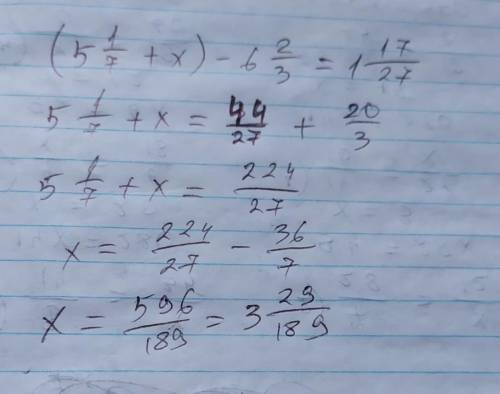 (5 1/7 + x) - 6 2/3 = 1 17/27
5 1/7 + x = 44/27 + 20/3
5 1/7 + x = 224/27
x = 224/27 - 36/7
x = 596/189 = 3 29/189